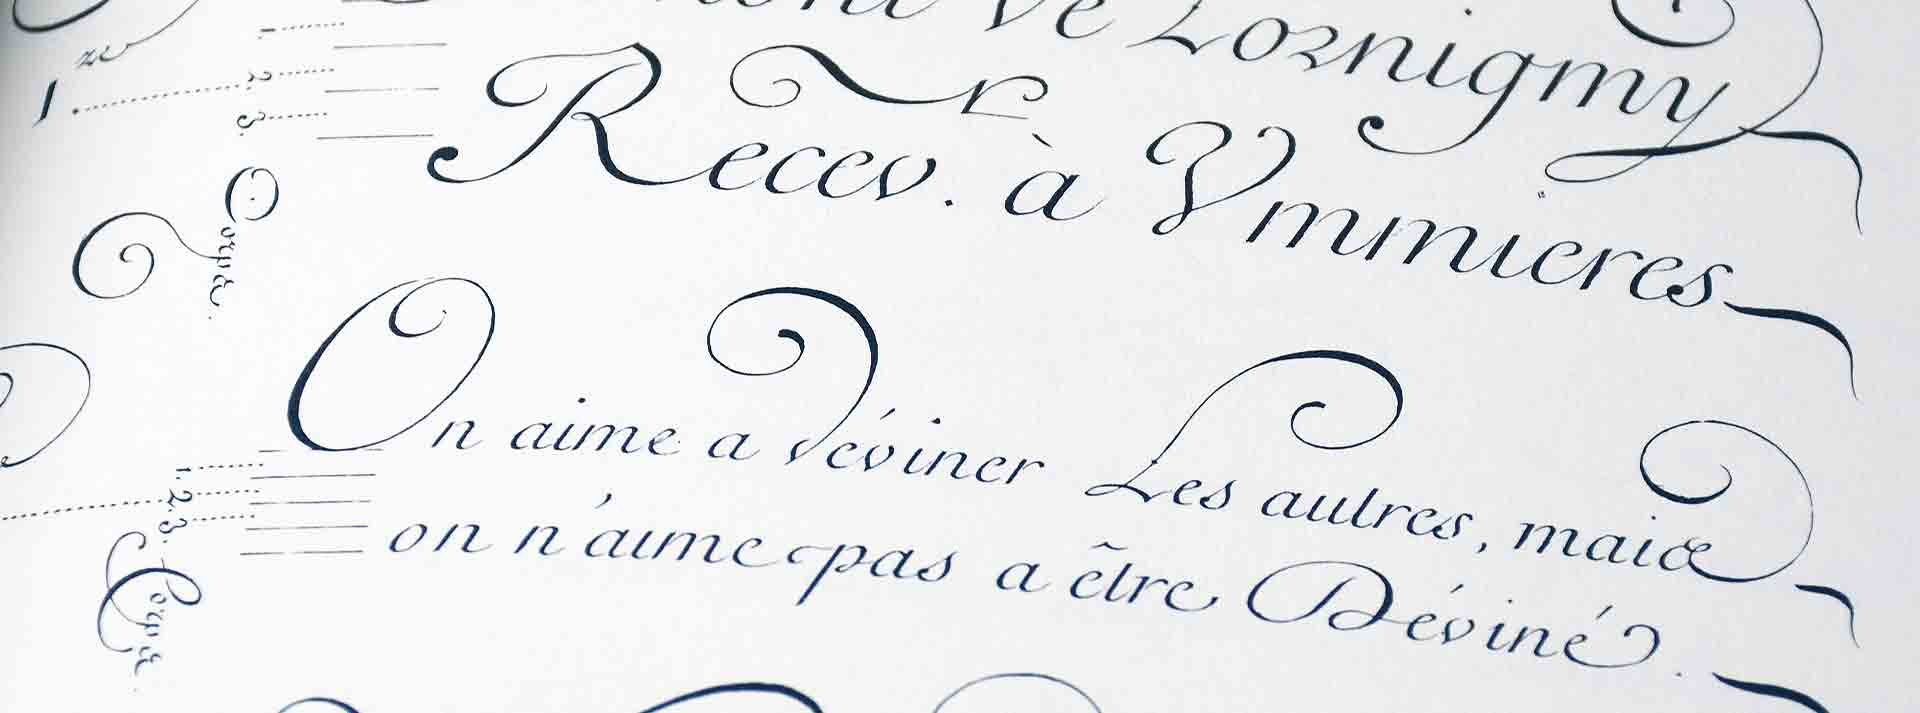 de Lornigmy
Recev. à Ymmieres
1.
2.
3.
Corps.
On aime a déviner Les autres, mais
on n'aime pas a être Déviné.
1.
2.
3.
Corps.